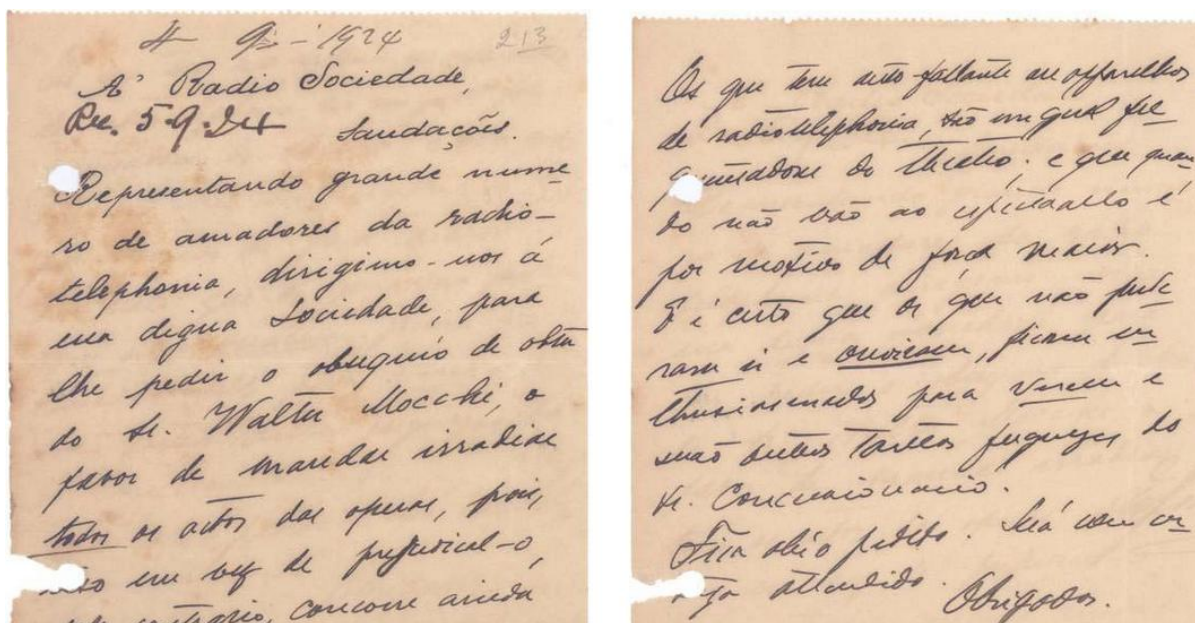 4 9 - 1924 213
A' Radio Sociedade,
Rec. 5-9-24 Saudações.
Representando grande nume
ro de amadores da radio-
telephonia, dirigimo-nos á
essa digna Sociedade, para
lhe pedir o obsequio de obter
do Sr. Walter Mocchi, o
favor de mandar irradiar
todos os actos das operas, pois,
isso em vez de prejudical-o,
contrario, concorre ainda
Os que tem auto-fallante ou apparelhos
de radiotelephonia, são em geral fre
quentadores do theatro; e que quan
do não vão ao espetaculo é
por motivo de força maior.
E é certo que os que não pude
ram ir e ouviram, ficam en
thusiasmados para verem e
serão outros tantos freguezes do
Sr. Concessionario.
Fica ahi o pedido. Será com cer
teza attendido.
Obrigados.